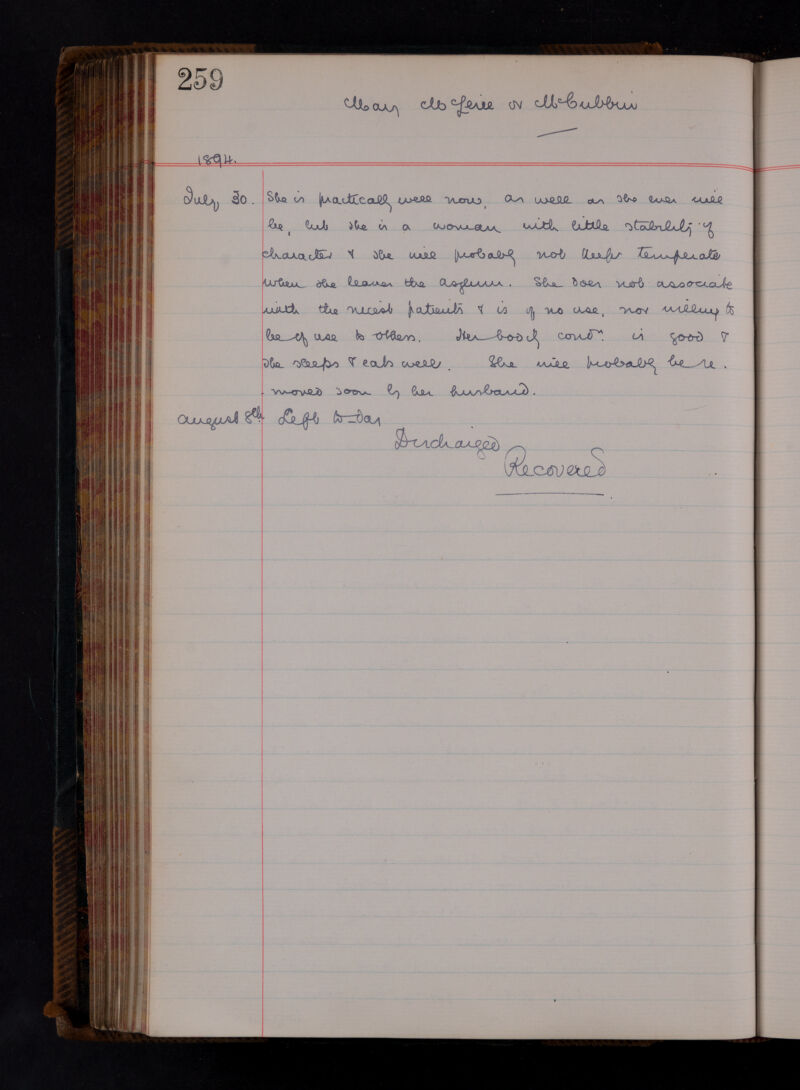 259
Mary McGhee or McCubbin
1894.
July 30. She is practically well now, as well as she ever will
be, but she is a woman with little stability of
character & she will probably not keep temperate
when she leaves the asylum. She does not associate
with the nicest patients & is of no use, nor willing to
be of use to others. Her bodily condn. is good &
she sleeps & eats well. She will probably be re-
-moved soon by her husband.
August 8th Left to-day
Discharged
Recovered